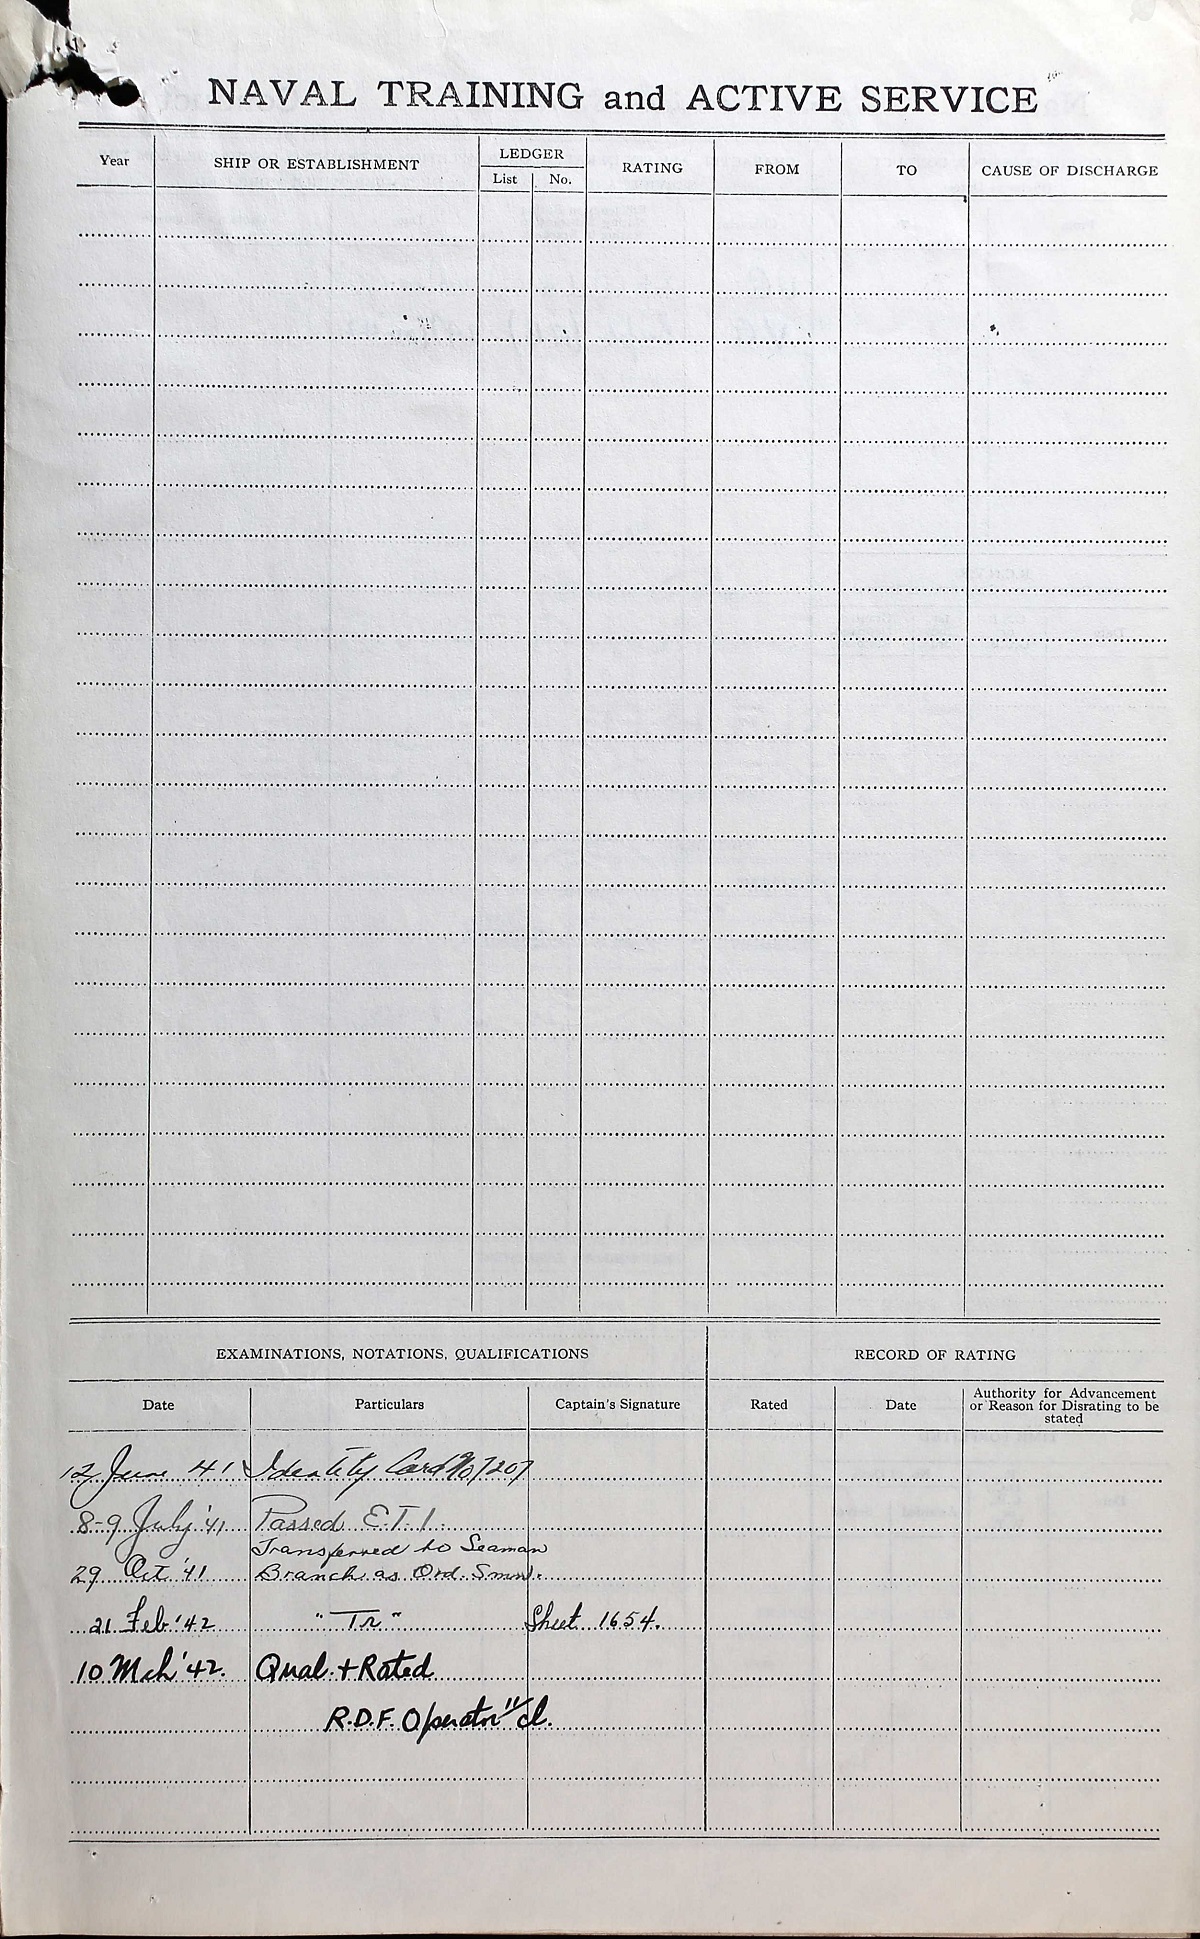 NAVAL TRAINING and ACTIVE SERVICE
Year
SHIP OR ESTABLISHMENT
LEDGER
List
No.
RATING
FROM
TO
CAUSE OF DISCHARGE
EXAMINATIONS, NOTATIONS, QUALIFICATIONS
RECORD OF RATING
Date
Particulars
Captain's Signature
Rated
Date
Authority for Advancement
or Reason for Disrating to be
stated
12 June 41 Identity Card No 7207
8-9 July '41 Passed E.T.1.
Transferred to Seaman
29 Oct '41 Branch as Ord. Smn.
21 Feb '42 "Tr" Sheet 1654.
10 Mch '42. Qual. + Rated
R.D.F. Operator II/cl.